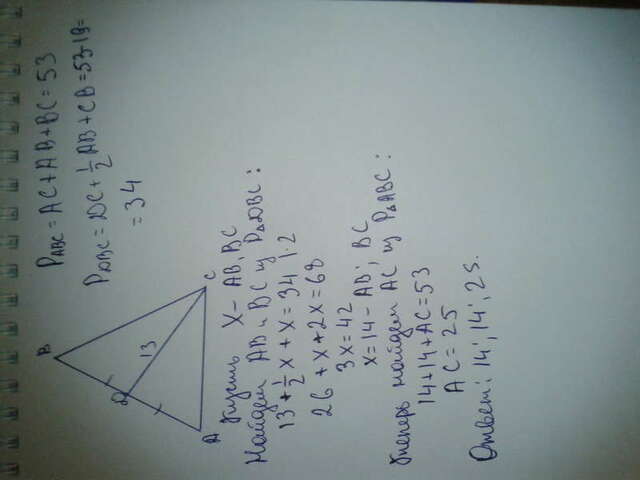 B
D
13
A
C
P_ABC = AC + AB + BC = 53
P_DBC = DC + 1/2 AB + CB = 53-19=
= 34
Пусть X - AB, BC
Найдем AB и BC из P△DBC:
13 + 1/2 x + x = 34 | · 2
26 + x + 2x = 68
3x = 42
x = 14 - AB; BC
Теперь найдем AC из P△ABC:
14 + 14 + AC = 53
AC = 25
Ответ: 14; 14; 25.